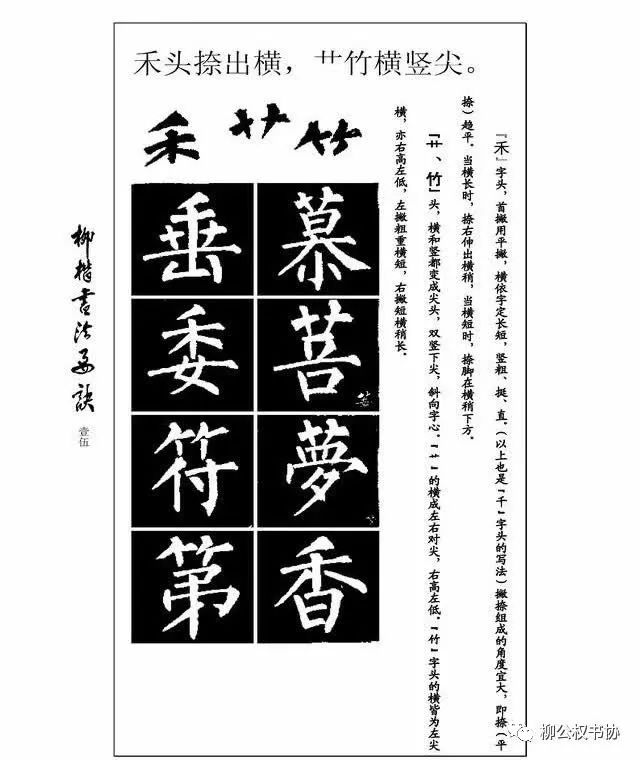 禾头捺出横，艹竹横竖尖。
禾艹竹
『禾』字头，首撇用平撇，横依字定长短，竖粗、挺、直。(以上也是『千』字头的写法)撇捺组成的角度宜大，即捺(平
捺)趋平。当横长时，捺右伸出横稍，当横短时，捺脚在横稍下方。
『艹、竹』头，横和竖都变成尖头，双竖下尖，斜向字心。『艹』的横成左右对尖，右高左低。『竹』字头的横皆为左尖
横，亦右高左低，左撇粗重横短，右撇短横稍长。
垂慕
委菩
符夢
第香
柳楷书法要诀
壹伍
柳公权书协